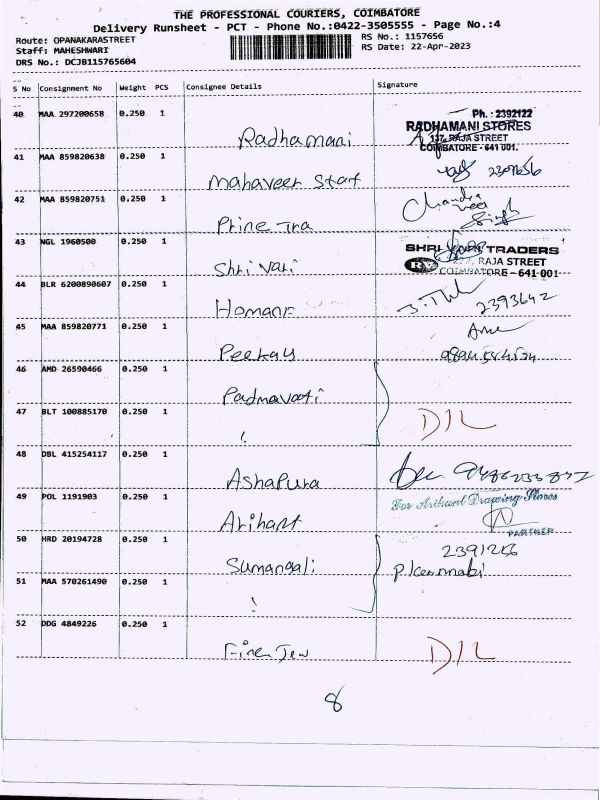 THE PROFESSIONAL COURIERS, COIMBATORE
Delivery Runsheet - PCT - Phone No.:0422-3505555 - Page No.:4
Route: OPANAKARASTREET
RS No.: 1157656
Staff: MAHESHWARI
RS Date: 22-Apr-2023
DRS No.: DCJB115765604
S No Consignment No Weight PCS Consignee Details Signature
40 MAA 297200658 0.250 1
Radhamani
Ph. : 2392122
RADHAMANI STORES
137, RAJA STREET
COIMBATORE - 641 001.
41 MAA 859820638 0.250 1
Mahaveer Start
42 MAA 859820751 0.250 1
Prine Tra
Chandra
veer
Singh
43 NGL 1960500 0.250 1
Shri Vari
SHRI TRADERS
RAJA STREET
RV COIMBATORE - 641 001
44 BLR 6200890607 0.250 1
2393642
45 MAA 859820771 0.250 1
Peekay
46 AMD 26590466 0.250 1
Padmavati
47 BLT 100885170 0.250 1
D/L
48 DBL 415254117 0.250 1
Ashapura
49 POL 1191903 0.250 1
Arihant
For Arihant Draping Stores
PARTNER
50 HRD 20194728 0.250 1
Sumangali
51 MAA 570261490 0.250 1
52 DDG 4849226 0.250 1
Fine Jew
D/L
8